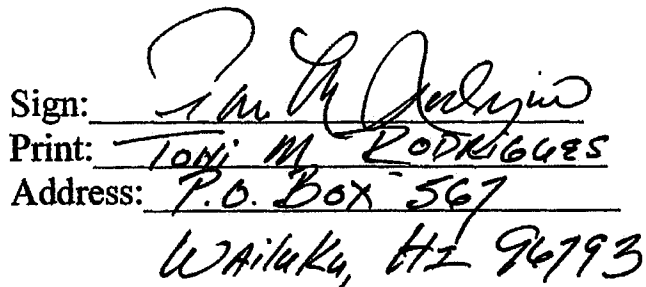 Sign: Toni M Rodrigues
Print: Toni M RODRiGUES
Address: P.O. Box 567
WAiluKu, HI 96793